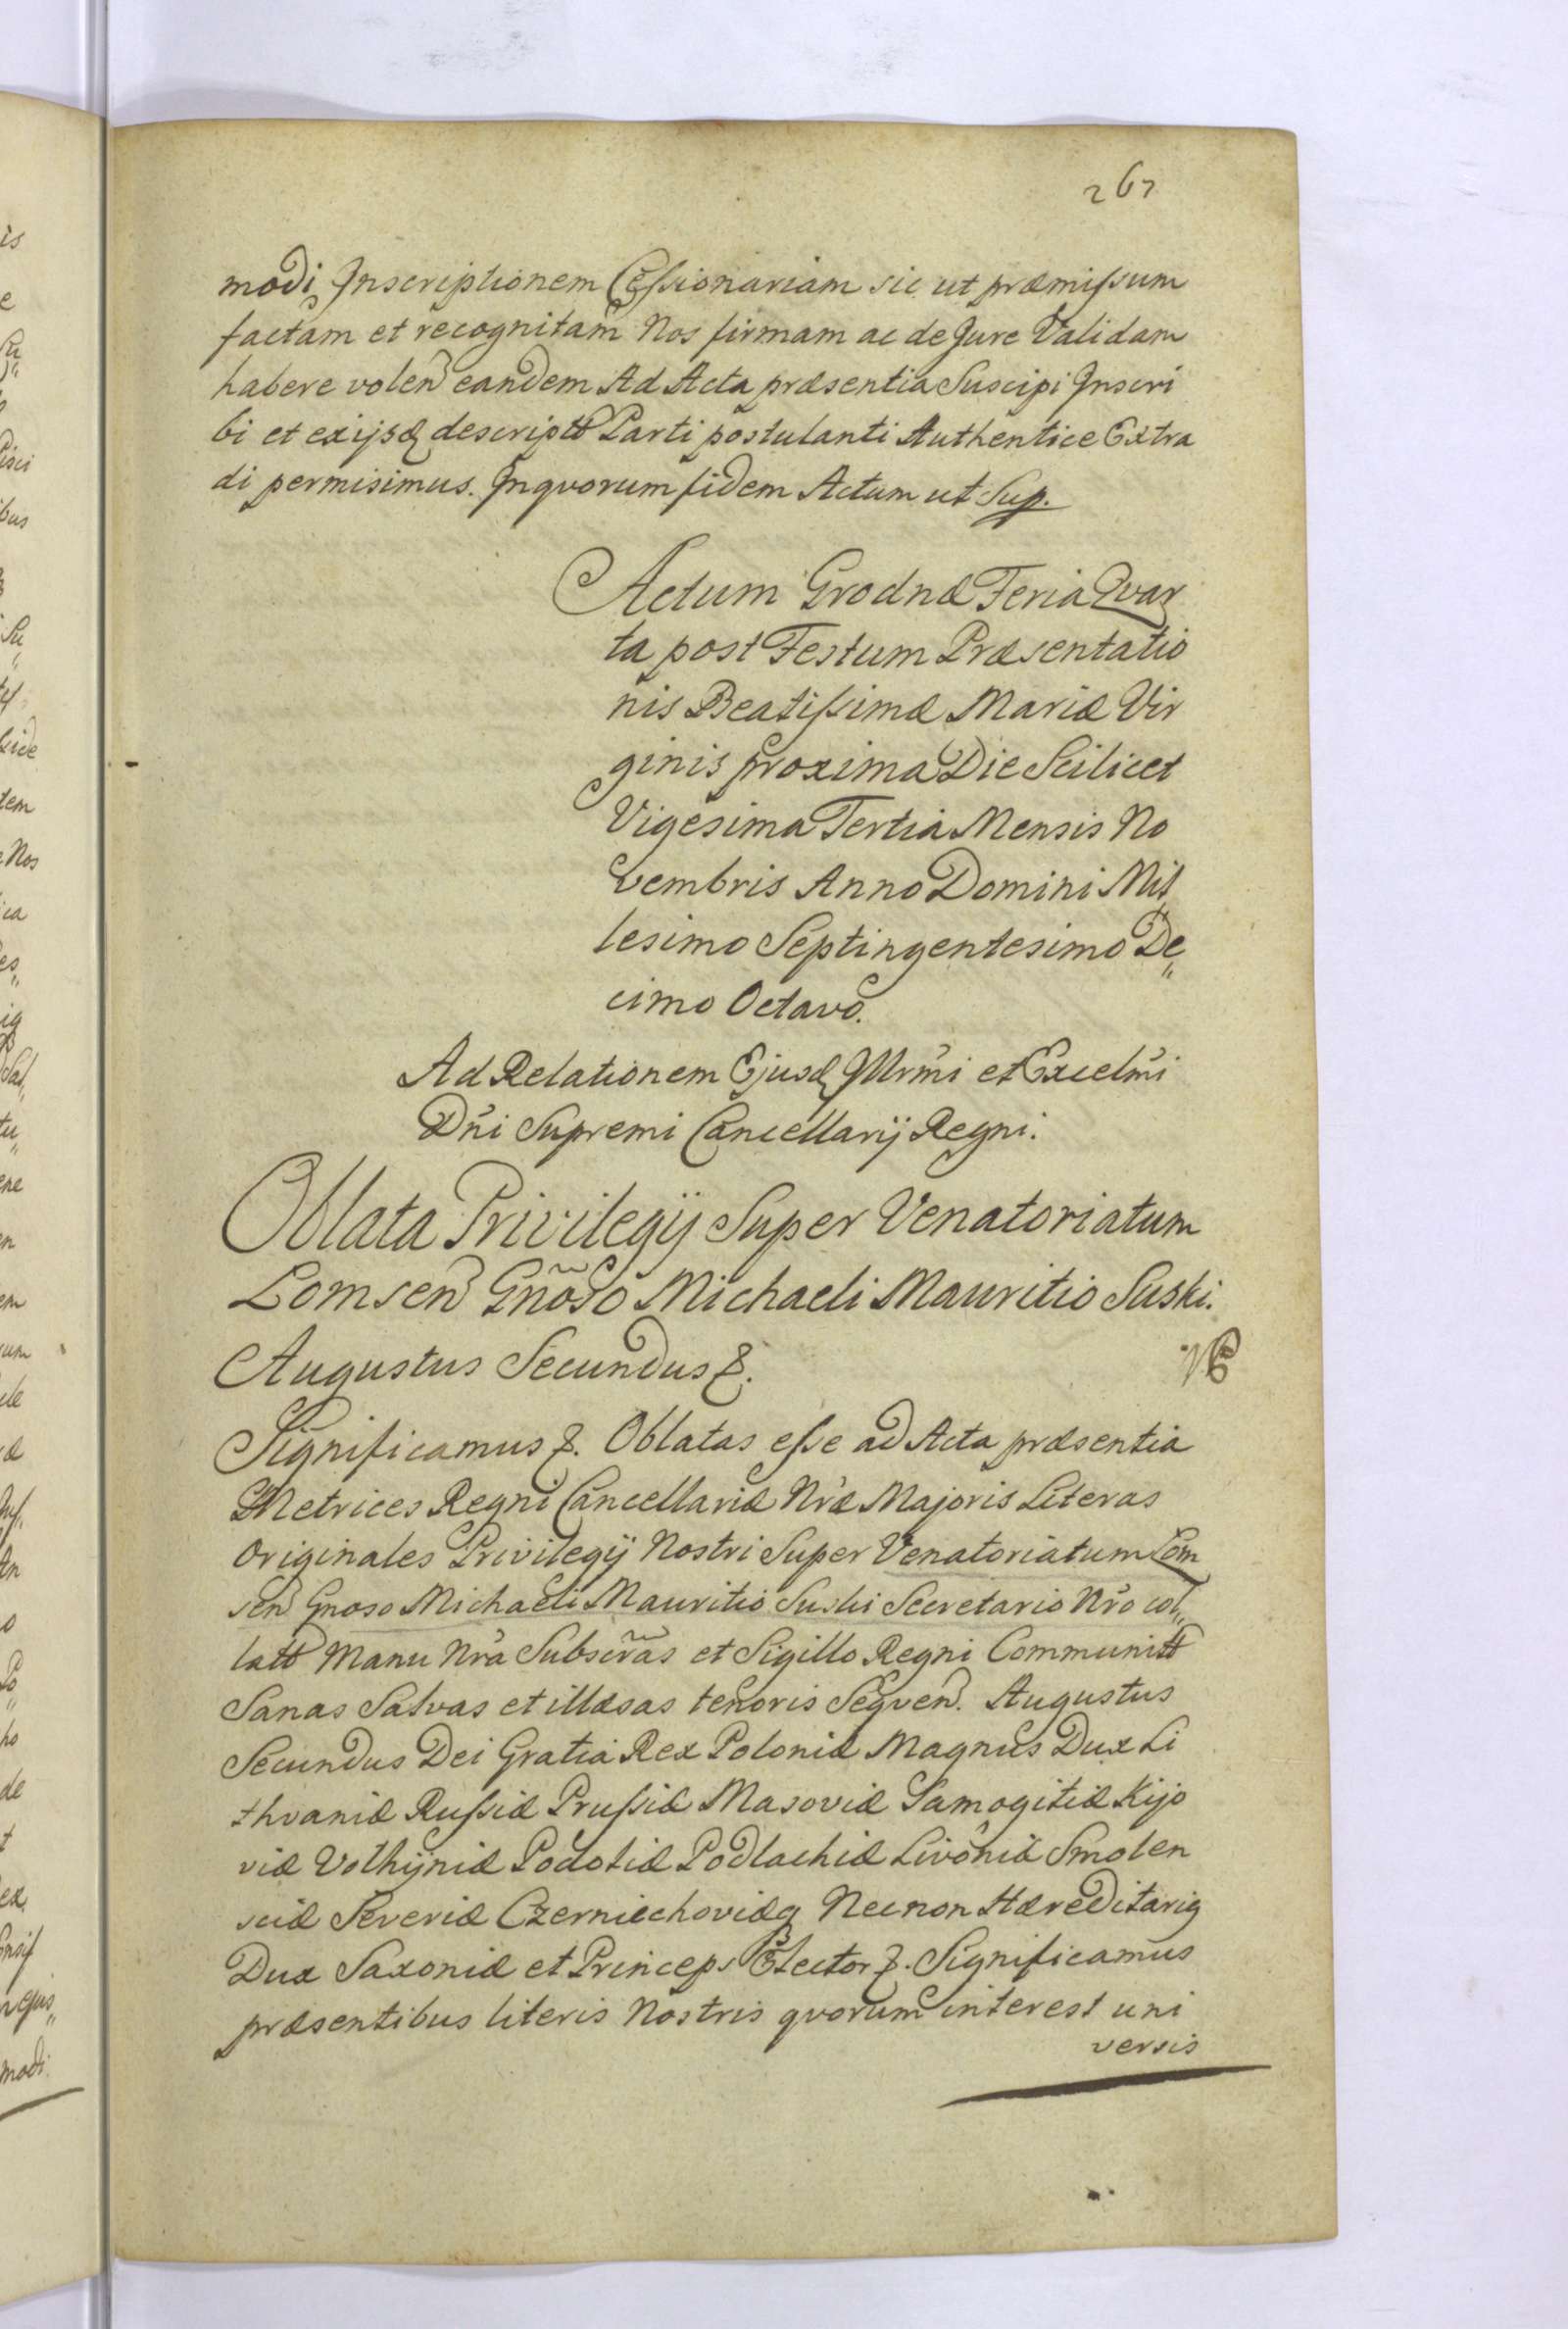 267
modi Inscriptionem Cessionariam sic ut præmissum
factam et recognitam Nos firmam ac de Jure Validam
habere volen eandem Ad Acta præsentia Suscipi Inscri
bi et exijsq descriptt Parti postulanti Authentice Extra
di permisimus. Inqvorum fidem Actum ut Sup.
Actum Grodnæ Feria Qvar
ta post Festum Præsentatio
nis Beatissimæ Mariæ Vir
ginis proxima Die Scilicet
Vigesima Tertia Mensis No
vembris Anno Domini Mil
lesimo Septingentesimo De„
cimo Octavo.
Ad Relationem Ejusd Illrmi et Excelmi
Dni Supremi Cancellarij Regni.
Oblata Privilegij Super Venatoriatum
Lomsen Gnoso Michaeli Mauritio Suski.
Augustus Secundus &.
NB
Significamus &. Oblatas esse ad Acta præsentia
Metrices Regni Cancellariæ Nræ Majoris Literas
Originales Privilegij Nostri Super Venatoriatum Lom
sen Gnoso Michaeli Mauritio Suski Secretario Nro col„
latt Manu Nra Subscras et Sigillo Regni Communitt
Sanas Salvas et illæsas tenoris Seqven. Augustus
Secundus Dei Gratia Rex Poloniæ Magnus Dux Li
thvaniæ Russiæ Prussiæ Masoviæ Samogitiæ Kijo
viæ Volhijniæ Podoliæ Podlachiæ Livoniæ Smolen
sciæ Severiæ Czerniechoviæq Necnon Hæreditarig
Dux Saxoniæ et Princeps Elector &. Significamus
præsentibus literis Nostris qvorum interest uni
versis